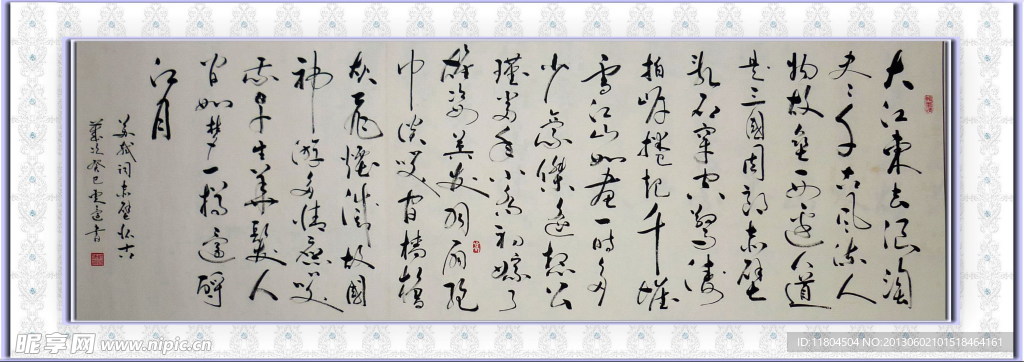 大江東去浪淘
尽千古风流人
物故壘西邊人道
是三國周郎赤壁
亂石穿空驚濤
拍岸捲起千堆
雪江山如畫一時多
少豪傑遥想公
瑾當年小喬初嫁了
雄姿英发羽扇纶
巾談笑间檣櫓
灰飛煙滅故國
神游多情應笑
我早生華髮人
间如梦一樽還酹
江月
苏軾词赤壁怀古
歲次癸巳 書
昵享网 www.nipic.cn
ID:11804504 NO:20130602101518464161